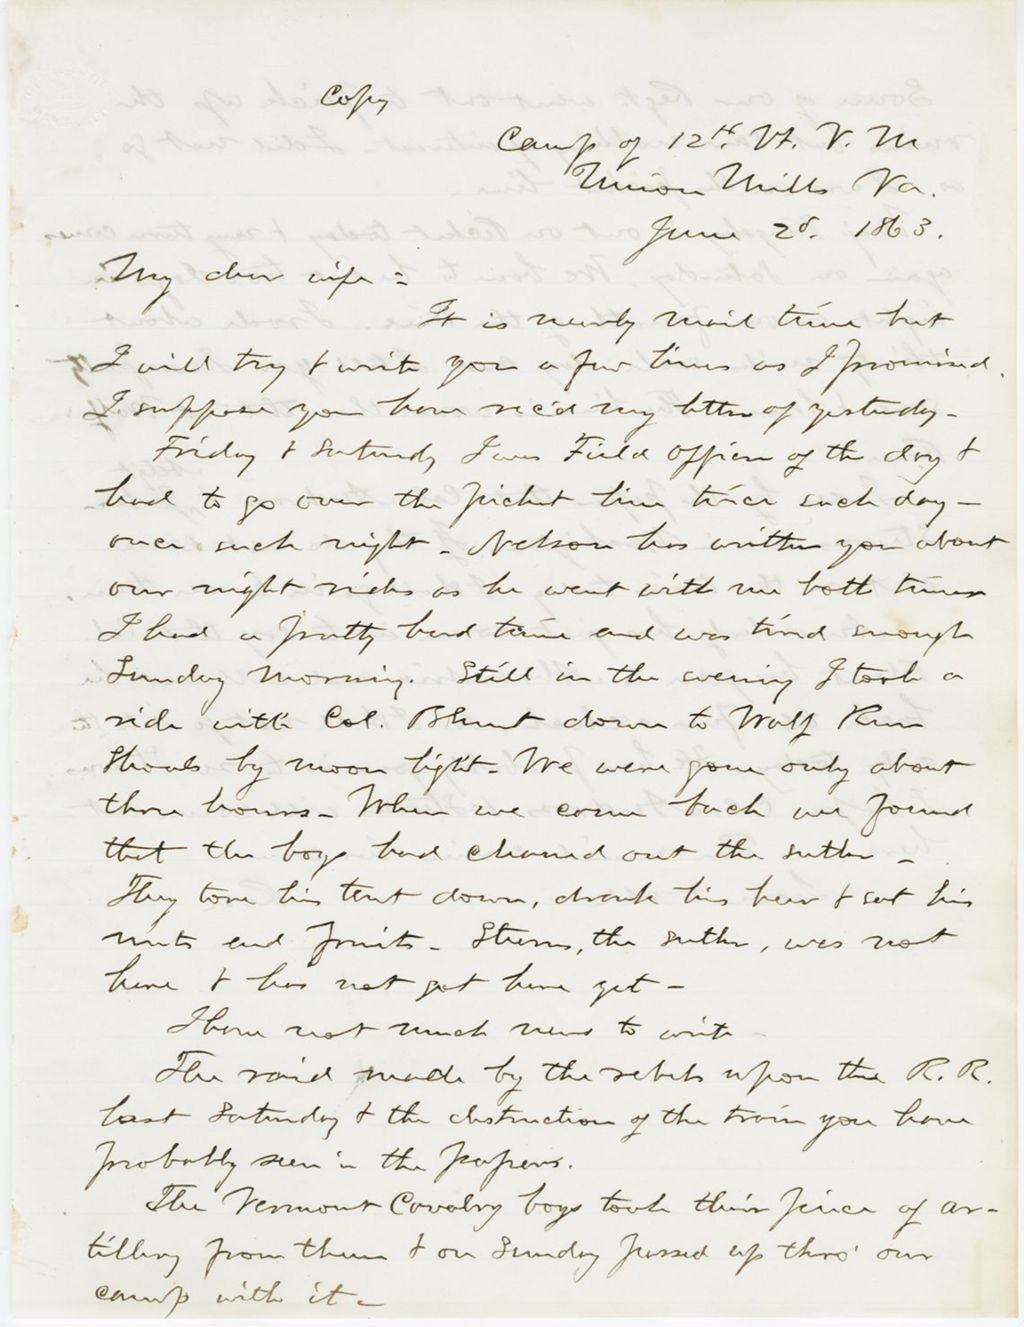 Copy
Camp of 12th. Vt. V. M
Union Mills Va.
June 2d. 1863.
My dear wife =
It is nearly mail time but
I will try & write you a few lines as I promised.
I suppose you have rec'd my letter of yesterday -
Friday & Saturday I was Field Officer of the day &
had to go over the picket line twice each day -
once each night - Nelson has written you about
our night rides as he went with me both times
I had a pretty hard time and was tired enough
Sunday morning. Still in the evening I took a
ride with Col. Blunt down to Wolf Run
Shoals by moon light - We were gone only about
three hours - When we came back we found
that the boys had cleaned out the sutler -
They tore his tent down, drank his beer & eat his
nuts and fruits - Sterns, the sutler, was not
here & has not got here yet -
I have not much news to write -
The raid made by the rebels upon the R. R.
last Saturday & the destruction of the train you have
probably seen in the papers.
The Vermont Cavalry boys took their piece of ar-
tillery from them & on Sunday passed up thro' our
camp with it -